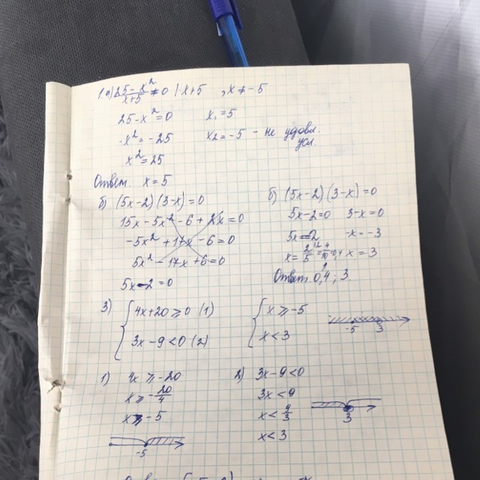 1. а) 25-x²/x+5 = 0 |·x+5 , x ≠ -5
25-x²=0 x₁=5
-x²=-25 x₂=-5 - не удовл. усл.
x²=25
Ответ. x=5
б) (5x-2)(3-x)=0
15x-5x²-6+2x=0
-5x²+17x-6=0
5x²-17x+6=0
5x-2=0
б) (5x-2)(3-x)=0
5x-2=0 3-x=0
5x=2 -x=-3
x=2/5=4/10=0,4 x=3
Ответ: 0,4; 3
3) { 4x+20≥0 (1) { x≥-5
3x-9<0 (2) x<3
-5 3
1) 4x≥-20
x≥-20/4
x≥-5
-5
2) 3x-9<0
3x<9
x<9/3
x<3
3